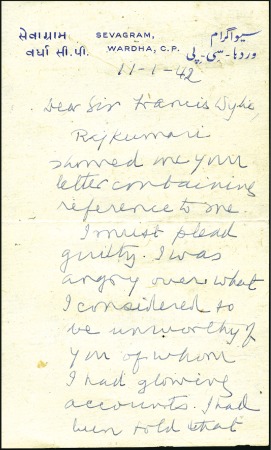 सेवाग्राम SEVAGRAM, سیواگرام
वर्धा सी. पी. WARDHA, C.P. وردہا۔ سی۔ پی
11-1-42
Dear Sir Francis Wylie,
Rajkumari
showed me your
letter containing
reference to me.
I must plead
guilty. I was
angry over what
I considered to
be unworthy of
you of whom
I had glowing
accounts. I had
been told that